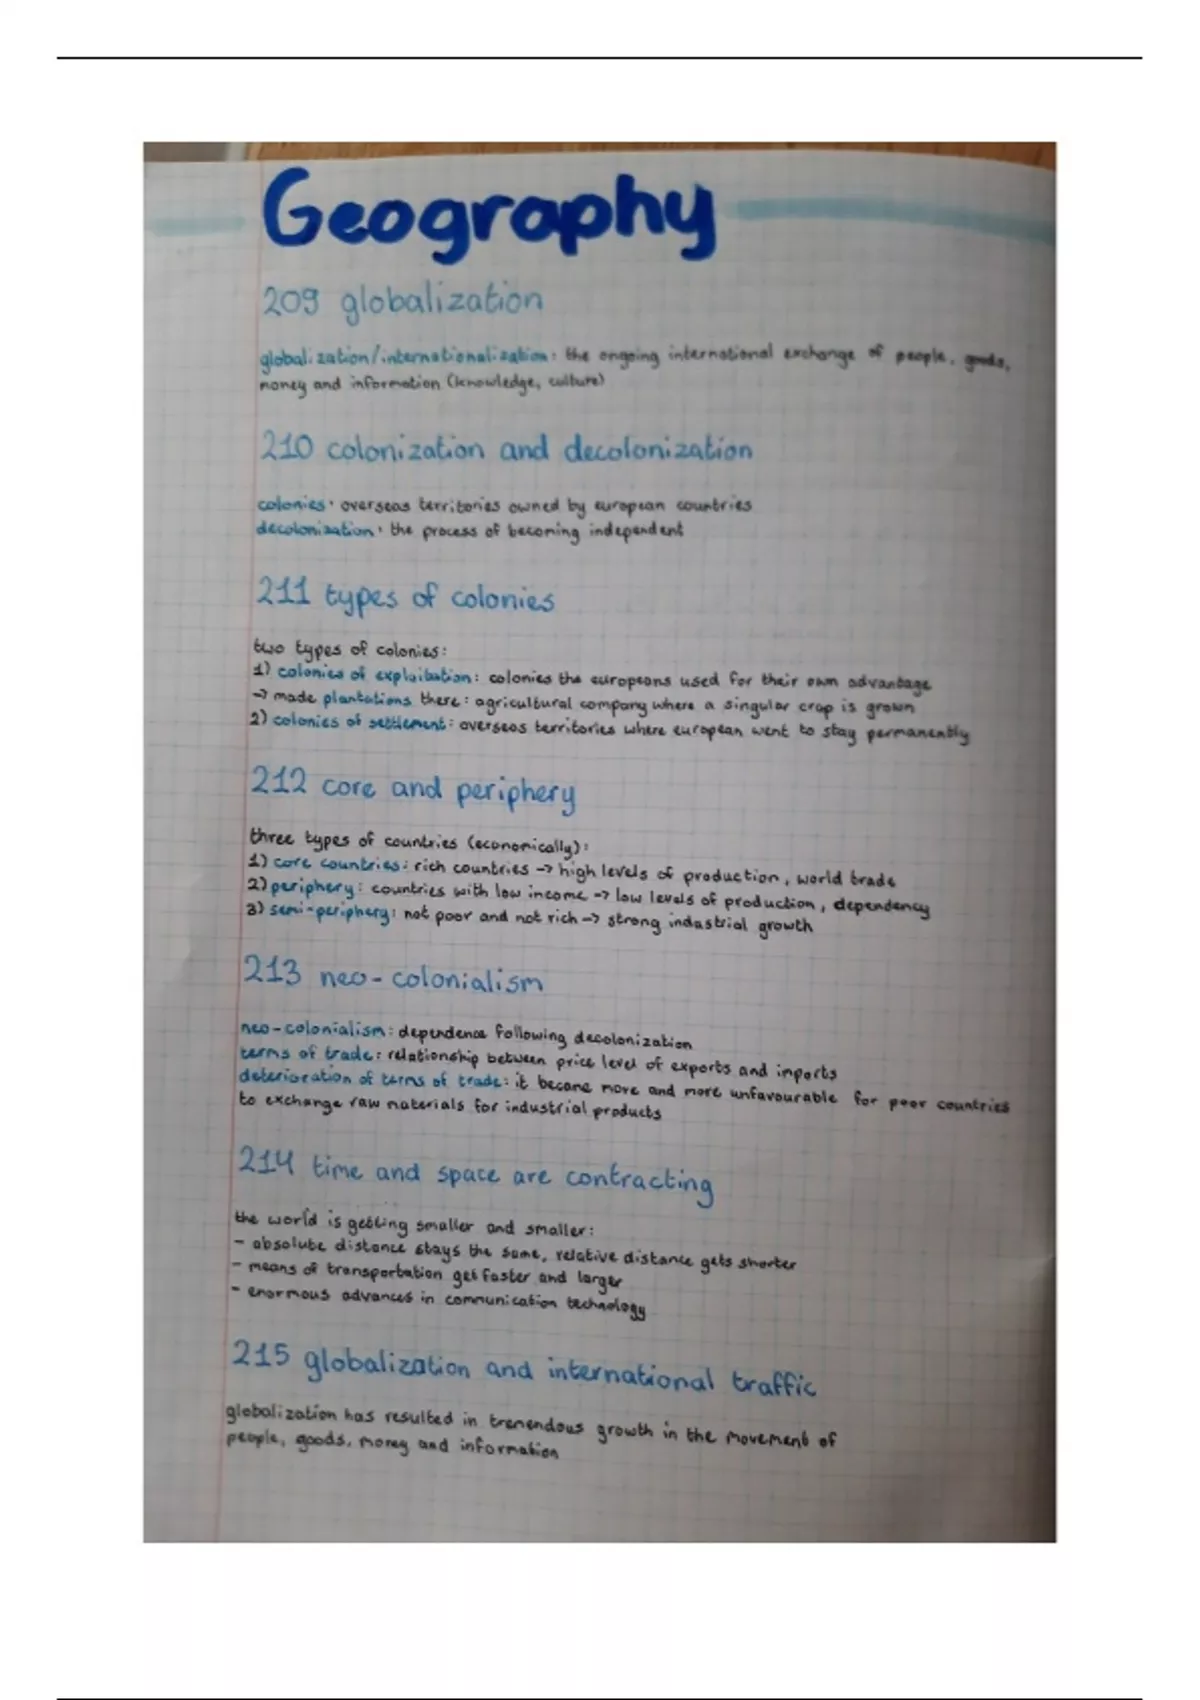 Geography
209 globalization
globalization/internationalization: the ongoing international exchange of people, goods,
money and information (knowledge, culture)
210 colonization and decolonization
colonies: overseas territories owned by european countries
decolonization: the process of becoming independent
211 types of colonies
two types of colonies:
1) colonies of exploitation: colonies the europeans used for their own advantage
→ made plantations there: agricultural company where a singular crop is grown
2) colonies of settlement: overseas territories where european went to stay permanently
212 core and periphery
three types of countries (economically):
1) core countries: rich countries → high levels of production, world trade
2) periphery: countries with low income → low levels of production, dependency
3) semi-periphery: not poor and not rich → strong industrial growth
213 neo-colonialism
neo-colonialism: dependence following decolonization
terms of trade: relationship between price level of exports and imports
deterioration of terms of trade: it became more and more unfavourable for poor countries
to exchange raw materials for industrial products
214 time and space are contracting
the world is getting smaller and smaller:
- absolute distance stays the same, relative distance gets shorter
- means of transportation get faster and larger
- enormous advances in communication technology
215 globalization and international traffic
globalization has resulted in tremendous growth in the movement of
people, goods, money and information